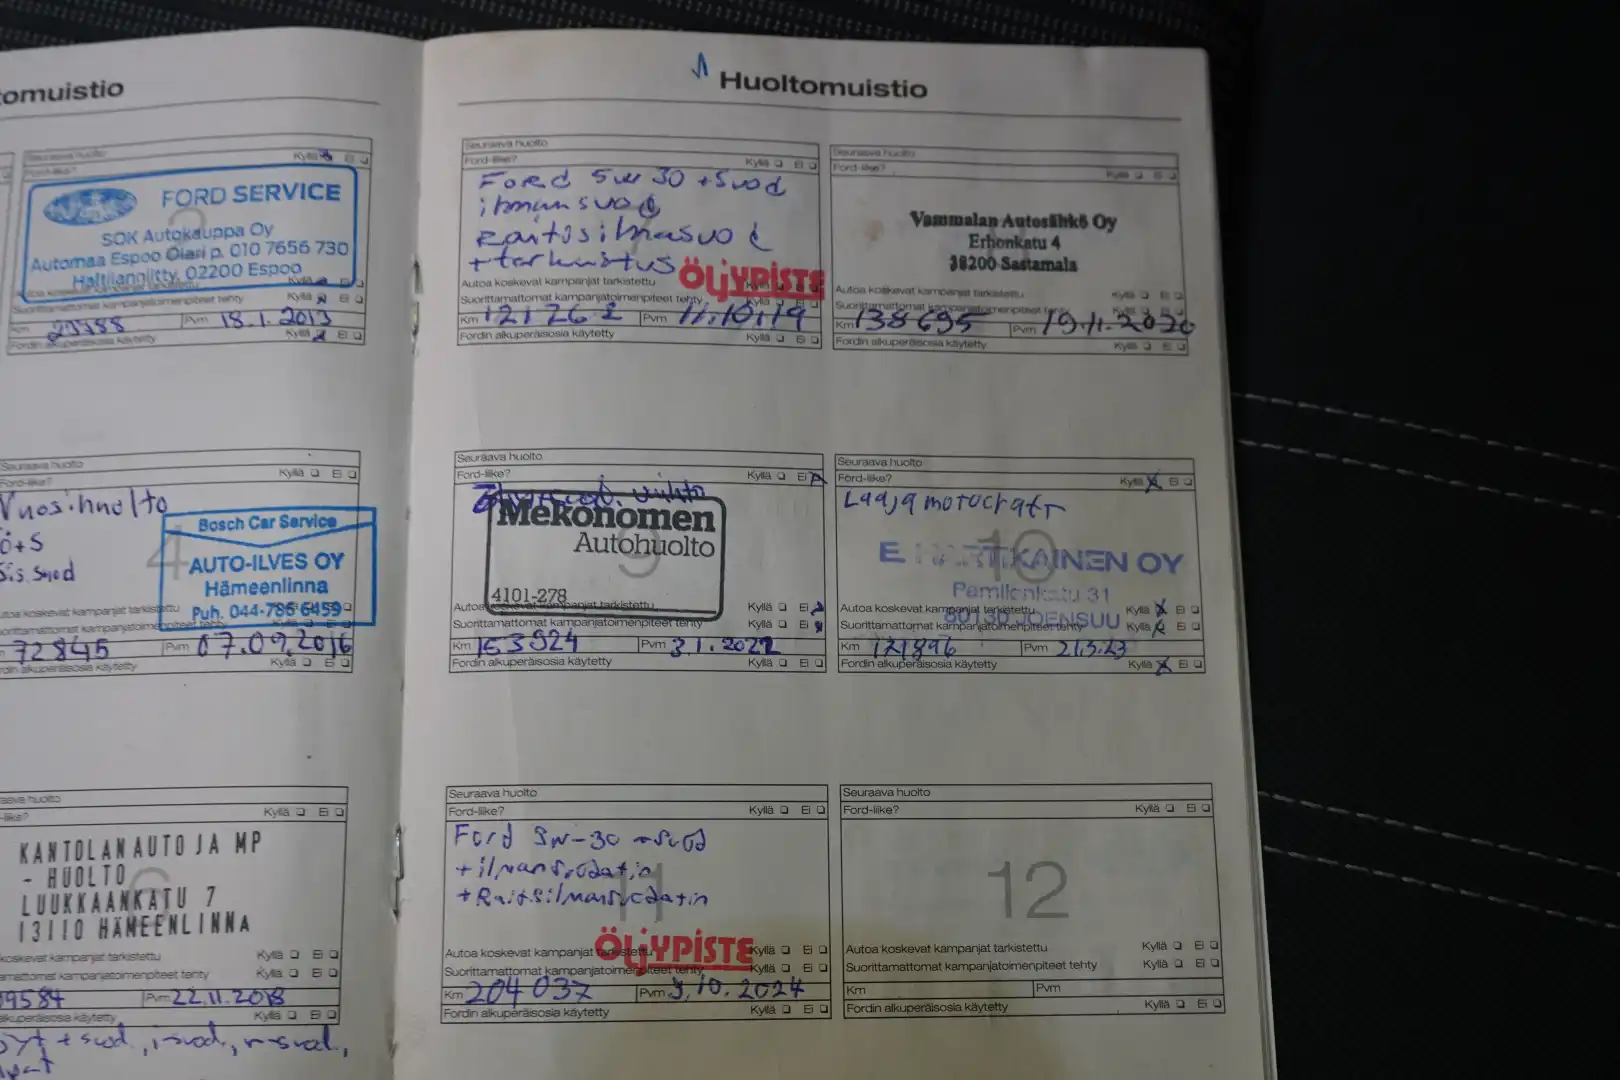 omuistio
Seuraava huolto
Kyllä Ei
FORD SERVICE
SOK Autokauppa Oy
Automaa Espoo Olari p. 010 7656 730
Haltilanniitty, 02200 Espoo
Suorittamattomat kampanjatoimenpiteet tehty Kyllä Ei
Km Pvm 18.1.2013
Fordin alkuperäisosia käytetty Kyllä Ei
Seuraava huolto
Ford-liike? Kyllä Ei
Vuosihuolto
Ö+S
4
Bosch Car Service
AUTO-ILVES OY
Hämeenlinna
Puh. 044-786 6459
72845 Pvm 07.09.2016
Kyllä Ei
Kyllä Ei
KANTOLAN AUTO JA MP
- HUOLTO
LUUKKAANKATU 7
13110 HÄMEENLINNA
koskevat kampanjat tarkistettu Kyllä Ei
Kyllä Ei
9584 Pvm 22.11.2018
Kyllä Ei
+ suod., i-suod., r-suod.,
Huoltomuistio
Seuraava huolto
Ford-liike? Kyllä Ei
Ford 5w30 + suod
ilmansuod
Raitisilmasuod
+ tarkastus
ÖLJYPISTE
Autoa koskevat kampanjat tarkistettu Kyllä Ei
Suorittamattomat kampanjatoimenpiteet tehty Kyllä Ei
Km 121262 Pvm 11.10.19
Fordin alkuperäisosia käytetty Kyllä Ei
Seuraava huolto
Ford-liike? Kyllä Ei
Vammalan Autosähkö Oy
Erhonkatu 4
38200 Sastamala
Autoa koskevat kampanjat tarkistettu Kyllä Ei
Suorittamattomat kampanjatoimenpiteet tehty Kyllä Ei
Km 138695 Pvm 19.11.2020
Fordin alkuperäisosia käytetty Kyllä Ei
Seuraava huolto
Ford-liike? Kyllä Ei
vaihto
Mekonomen
Autohuolto
9
4101-278
Autoa koskevat kampanjat tarkistettu Kyllä Ei
Suorittamattomat kampanjatoimenpiteet tehty Kyllä Ei
Km 153924 Pvm 3.1.2022
Fordin alkuperäisosia käytetty Kyllä Ei
Seuraava huolto
Ford-liike? Kyllä Ei
Laaja motocraft
10
OY
Pamilonkatu 31
80130 JOENSUU
Autoa koskevat kampanjat tarkistettu Kyllä Ei
Suorittamattomat kampanjatoimenpiteet tehty Kyllä Ei
Km 171896 Pvm 21.3.23
Fordin alkuperäisosia käytetty Kyllä Ei
Seuraava huolto
Ford-liike? Kyllä Ei
Ford 5W-30 + suod
+ ilmansuodatin
+ Raitisilmansuodatin
11
ÖLJYPISTE
Autoa koskevat kampanjat tarkistettu Kyllä Ei
Suorittamattomat kampanjatoimenpiteet tehty Kyllä Ei
Km 204037 Pvm 3.10.2024
Fordin alkuperäisosia käytetty Kyllä Ei
Seuraava huolto
Ford-liike? Kyllä Ei
12
Autoa koskevat kampanjat tarkistettu Kyllä Ei
Suorittamattomat kampanjatoimenpiteet tehty Kyllä Ei
Km Pvm
Fordin alkuperäisosia käytetty Kyllä Ei